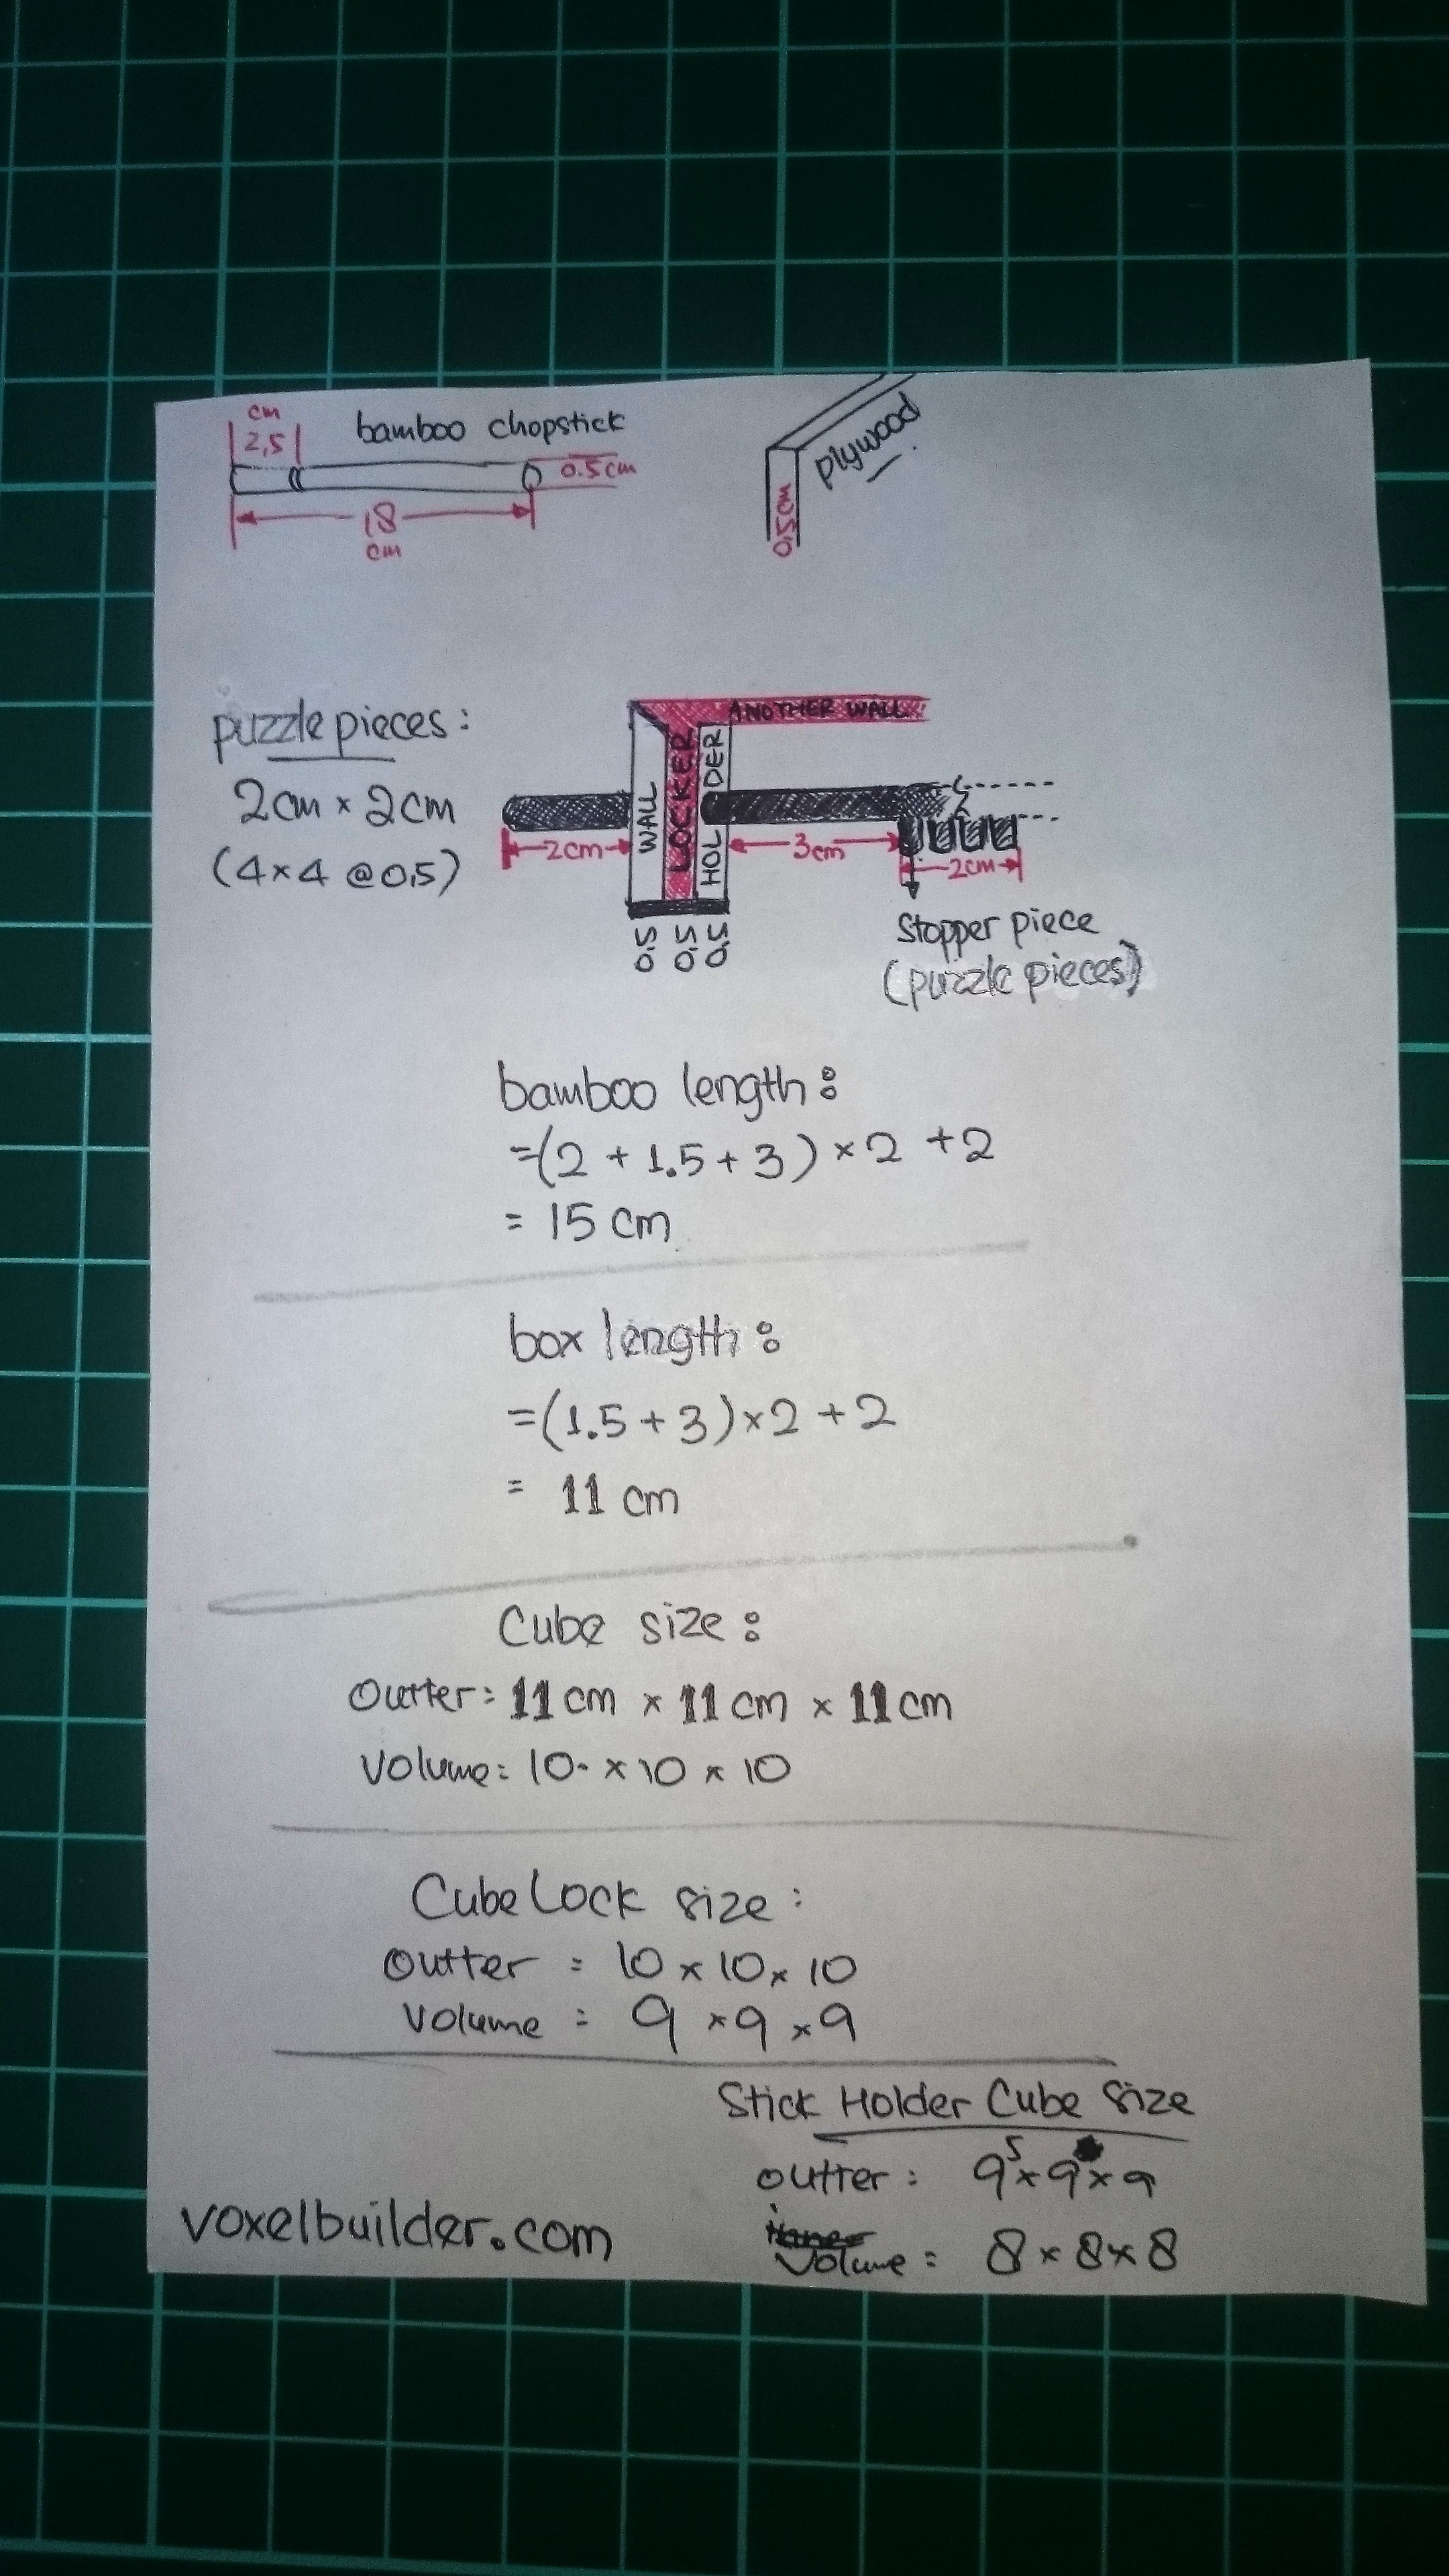 cm
2,5
bamboo chopstick
0.5cm
18
cm
plywood
0,5cm
puzzle pieces:
2cm × 2cm
(4×4 @0,5)
ANOTHER WALL
WALL
LOCKER
HOLDER
2cm
3cm
2cm
0.5 0.5 0.5
Stopper piece
(puzzle pieces)
bamboo length:
=(2 + 1.5 + 3) × 2 + 2
= 15 cm
box length:
=(1.5 + 3) × 2 + 2
= 11 cm
Cube size:
Outter: 11 cm × 11 cm × 11 cm
Volume: 10 × 10 × 10
Cube Lock size:
Outter = 10 × 10 × 10
Volume = 9 × 9 × 9
Stick Holder Cube Size
outter: 9 5 × 9 × 9
Volume = 8 × 8 × 8
voxelbuilder.com